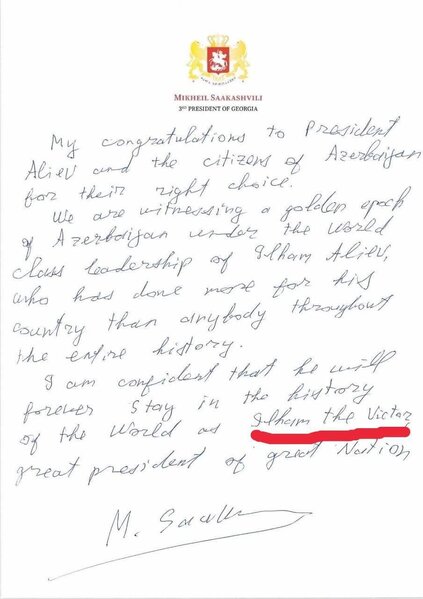 MIKHEIL SAAKASHVILI
3RD PRESIDENT OF GEORGIA
My congratulations to President
Aliev and the citizens of Azerbaijan
for their right choice.
We are witnessing a golden epoch
of Azerbaijan under the World
class leadership of Ilham Aliev,
who has done more for his
country than anybody throughout
the entire history.
I am confident that he will
forever stay in the history
of the World as Ilham the Victor,
great president of great Nation